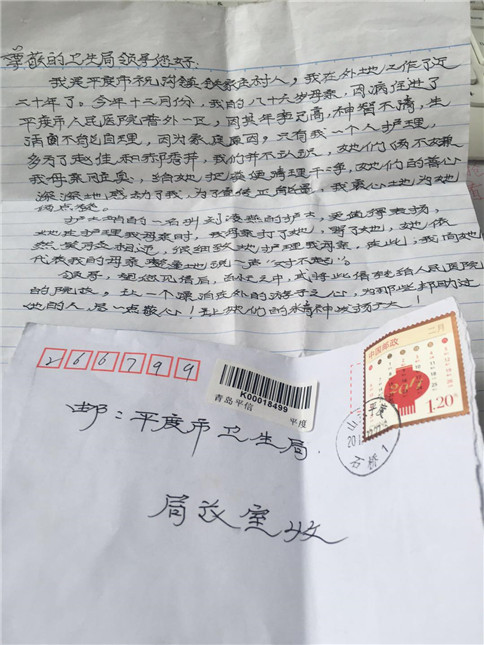 尊敬的卫生局领导您好：
我是平度市祝沟镇 庄村人，我在外地工作了近
二十年了。今年十二月份，我的八十六岁母亲，因病住进了
平度市人民医院普外一区，因其年事已高，神智不清，生
活面不能自理，因为家庭原因，只有我一个人护理，
多亏了赵佳和郭 ，我们并不认识，她们俩不嫌
我母亲 ，给她把 便清理干净，她们的善心
深深地感动了我，为了宣传正能量，我衷心地为她
俩点赞。
护士站的一名叫刘 的护士，更值得表扬，
她在护理我母亲时，我母亲打了她，骂了她，她依
然 相迎，很细致地护理我母亲，在此，我向她
代表我的母亲 地说一声“对不起”。
领导，您收见信后，百忙之中，或将此信转给人民医院
的院长，让一个漂泊在外的游子之心，为那些帮助过
她的人，尽一点敬心！让她们的精神发扬广大！
266799
K00018499
青岛平信 平度
中国邮政 二月
2017
1.20元
平度
石桥1
邮：平度市卫生局
局政室收